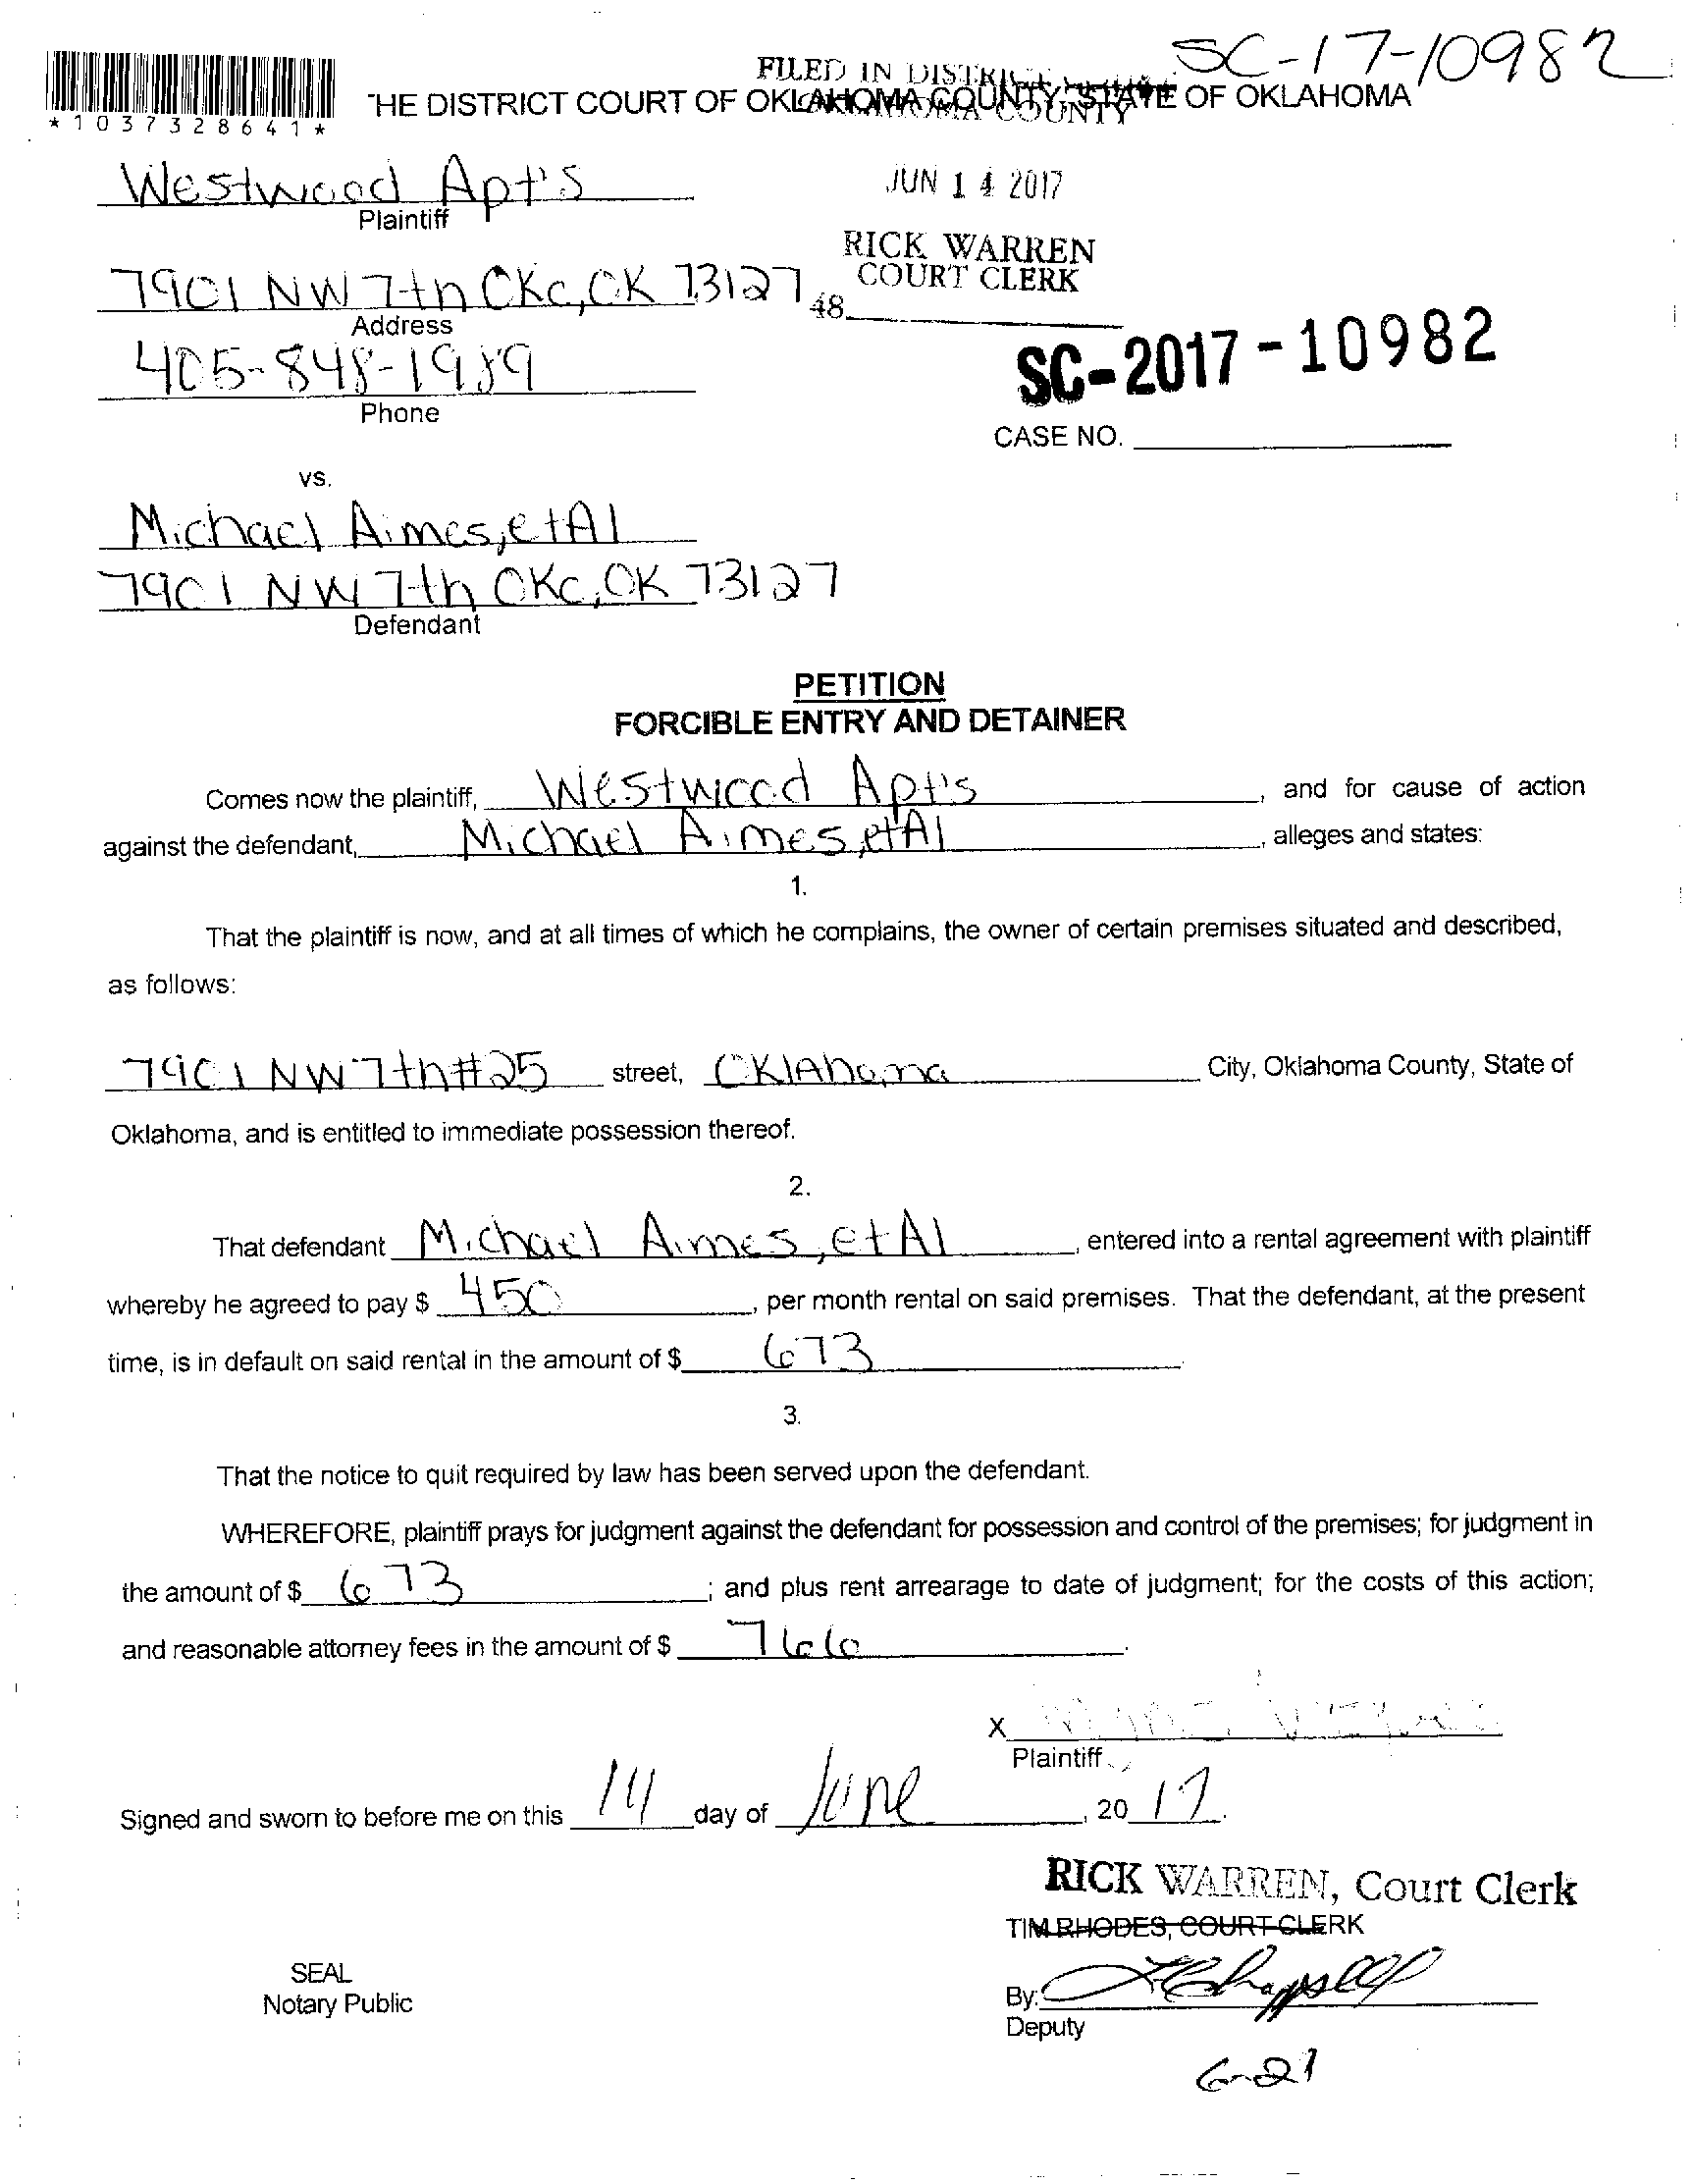 SC-17-10982
FILED IN DISTRICT COURT
OKLAHOMA COUNTY
THE DISTRICT COURT OF OKLAHOMA COUNTY, STATE OF OKLAHOMA
*1037328641*
Westwood Apt's
Plaintiff
JUN 14 2017
RICK WARREN
COURT CLERK
7901 NW 7th OKC, OK 73127
48
Address
405-848-1989
Phone
SC-2017-10982
CASE NO.
vs.
Michael Aimes, et Al
7901 NW 7th OKC, OK 73127
Defendant
PETITION
FORCIBLE ENTRY AND DETAINER
Comes now the plaintiff, Westwood Apt's, and for cause of action
against the defendant, Michael Aimes, et Al, alleges and states:
1.
That the plaintiff is now, and at all times of which he complains, the owner of certain premises situated and described,
as follows:
7901 NW 7th #25 street, Oklahoma City, Oklahoma County, State of
Oklahoma, and is entitled to immediate possession thereof.
2.
That defendant Michael Aimes, et Al, entered into a rental agreement with plaintiff
whereby he agreed to pay $ 450, per month rental on said premises. That the defendant, at the present
time, is in default on said rental in the amount of $ 673.
3.
That the notice to quit required by law has been served upon the defendant.
WHEREFORE, plaintiff prays for judgment against the defendant for possession and control of the premises; for judgment in
the amount of $ 673; and plus rent arrearage to date of judgment; for the costs of this action;
and reasonable attorney fees in the amount of $ 766.
X
Plaintiff
Signed and sworn to before me on this 14 day of June, 20 17.
RICK WARREN, Court Clerk
TIM RHODES, COURT CLERK
SEAL
Notary Public
By:
Deputy
6-21